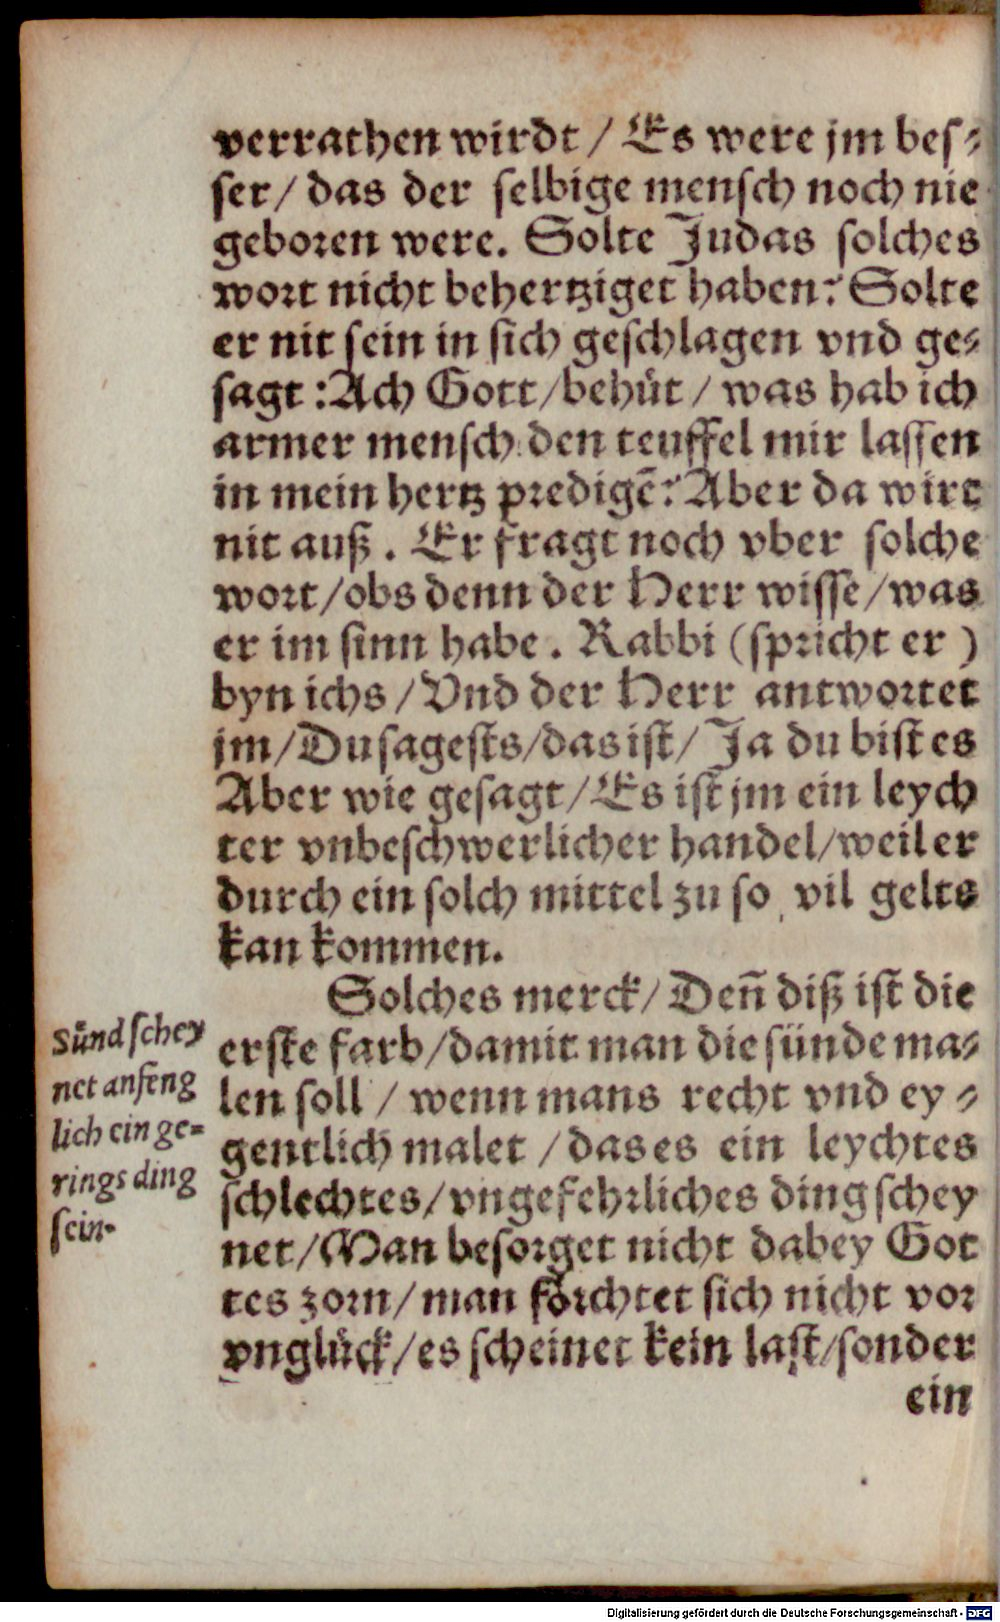 verrathen wirdt / Es were jm beſ⸗
ſer / das der ſelbige menſch noch nie
geboꝛen were. Solte Judas ſolches
woꝛt nicht behertziget haben? Solte
er nit ſein in ſich geſchlagen vnd ge⸗
ſagt : Ach Gott / behuͤt / was hab ich
armer menſch den teuffel mir laſſen
in mein hertz pꝛedigē? Aber da wirt
nit auß . Er fragt noch vber ſolche
woꝛt / obs denn der Herr wiſſe / was
er im ſinn habe . Rabbi (ſpꝛicht er )
byn ichs / Vnd der Herr antwoꝛtet
jm / Du ſageſts / das iſt / Ja du biſt es
Aber wie geſagt / Es iſt jm ein leych
ter vnbeſchwerlicher handel / weil er
durch ein ſolch mittel zu ſo vil gelts
kan kommen.
Solches merck / Deñ diß iſt die
erſte farb / damit man die ſünde ma⸗
len ſoll / wenn mans recht vnd ey⸗
gentlich malet / das es ein leychtes
ſchlechtes / vngefehꝛliches ding ſchey
net / Man beſoꝛget nicht dabey Got
tes zoꝛn / man foͤꝛchtet ſich nicht voꝛ
vngluͤck / es ſcheinet kein laſt / ſonder
ein
Suͤnd ſchey
net anfeng
lich ein ge⸗
rings ding
ſein.
Digitalisierung gefördert durch die Deutsche Forschungsgemeinschaft - DFG